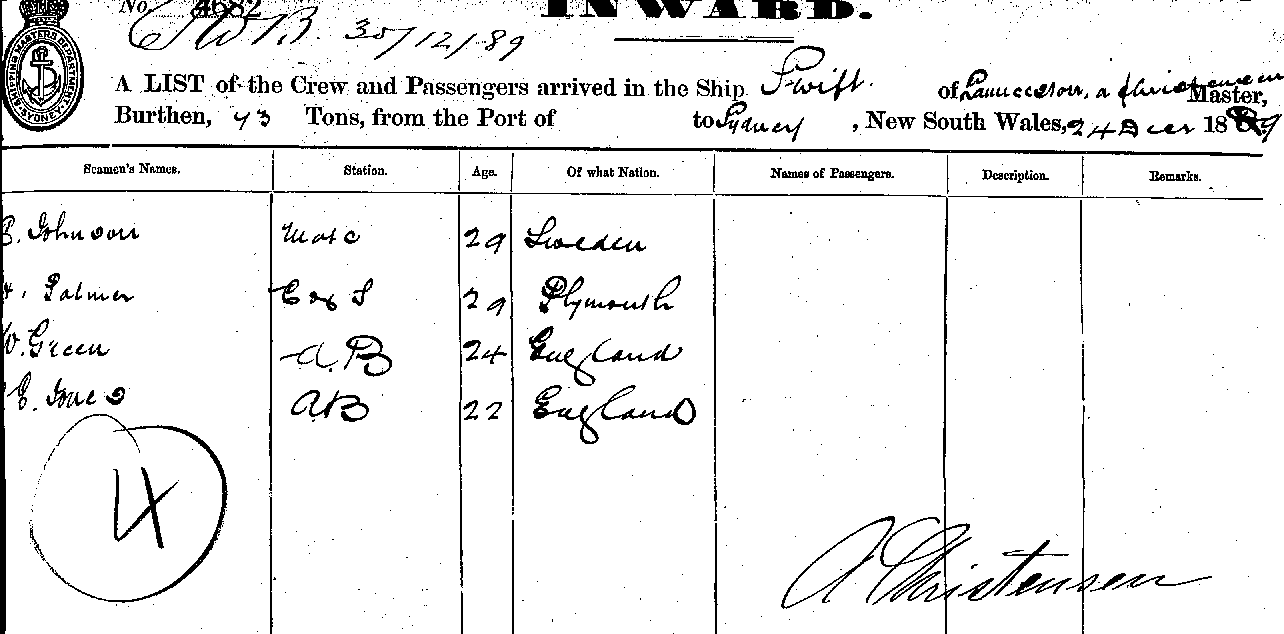 No. 4682 INWARD.
30/12/89
A LIST of the Crew and Passengers arrived in the Ship Swift. of Launceston, A Christensen Master,
Burthen, 43 Tons, from the Port of to Sydney, New South Wales, 24 Decr 1889
Seamen's Names. Station. Age. Of what Nation. Names of Passengers. Description. Remarks.
Johnson Mate 29 Sweden
Palmer Coo S 29 Plymouth
W. Green A.B 24 England
E. Jones AB 22 England
4
A Christensen
SHIPPING MASTERS DEPARTMENT SYDNEY